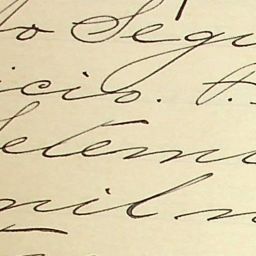 do Segu
icio. P.
Setem
mil n